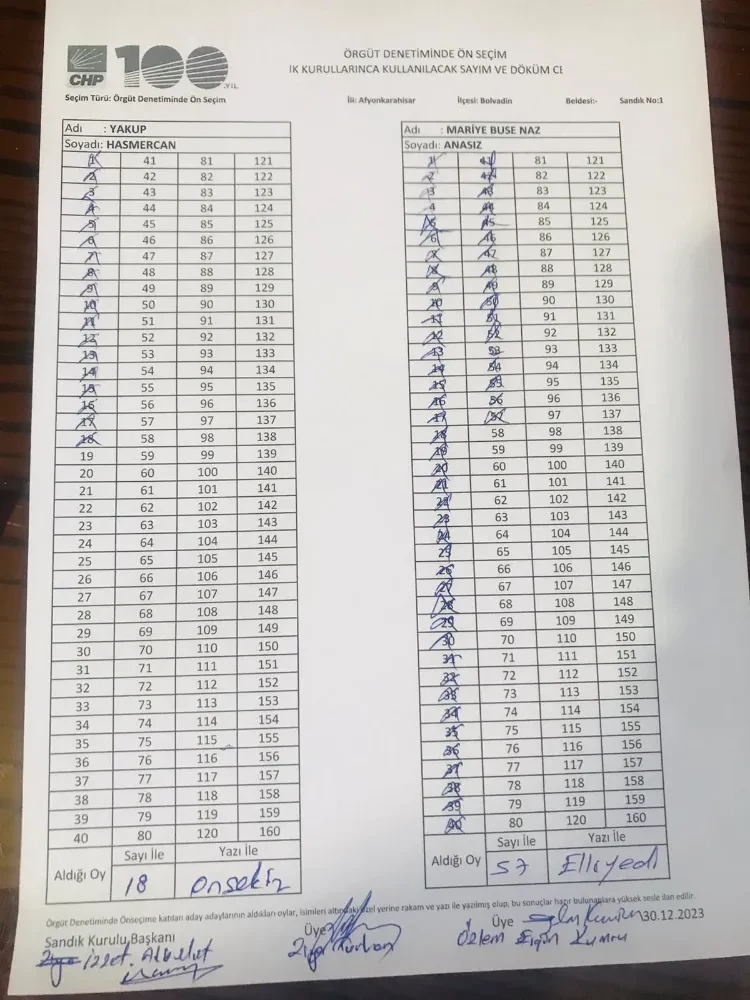 CHP 100 .YIL
ÖRGÜT DENETİMİNDE ÖN SEÇİM
IK KURULLARINCA KULLANILACAK SAYIM VE DÖKÜM CE
Seçim Türü: Örgüt Denetiminde Ön Seçim İli: Afyonkarahisar İlçesi: Bolvadin Beldesi:- Sandık No:1
Adı : YAKUP
Soyadı: HASMERCAN
1 41 81 121
2 42 82 122
3 43 83 123
4 44 84 124
5 45 85 125
6 46 86 126
7 47 87 127
8 48 88 128
9 49 89 129
10 50 90 130
11 51 91 131
12 52 92 132
13 53 93 133
14 54 94 134
15 55 95 135
16 56 96 136
17 57 97 137
18 58 98 138
19 59 99 139
20 60 100 140
21 61 101 141
22 62 102 142
23 63 103 143
24 64 104 144
25 65 105 145
26 66 106 146
27 67 107 147
28 68 108 148
29 69 109 149
30 70 110 150
31 71 111 151
32 72 112 152
33 73 113 153
34 74 114 154
35 75 115 155
36 76 116 156
37 77 117 157
38 78 118 158
39 79 119 159
40 80 120 160
Aldığı Oy Sayı İle Yazı İle
18 onsekiz
Adı : MARİYE BUSE NAZ
Soyadı: ANASIZ
1 41 81 121
2 42 82 122
3 43 83 123
4 44 84 124
5 45 85 125
6 46 86 126
7 47 87 127
8 48 88 128
9 49 89 129
10 50 90 130
11 51 91 131
12 52 92 132
13 53 93 133
14 54 94 134
15 55 95 135
16 56 96 136
17 57 97 137
18 58 98 138
19 59 99 139
20 60 100 140
21 61 101 141
22 62 102 142
23 63 103 143
24 64 104 144
25 65 105 145
26 66 106 146
27 67 107 147
28 68 108 148
29 69 109 149
30 70 110 150
31 71 111 151
32 72 112 152
33 73 113 153
34 74 114 154
35 75 115 155
36 76 116 156
37 77 117 157
38 78 118 158
39 79 119 159
40 80 120 160
Aldığı Oy Sayı İle Yazı İle
57 Elliyedi
Örgüt Denetiminde Önseçime katılan aday adaylarının aldıkları oylar, isimleri altındaki özel yerine rakam ve yazı ile yazılmış olup, bu sonuçlar hazır bulunanlara yüksek sesle ilan edilir.
Sandık Kurulu Başkanı Üye Üye 30.12.2023
İzzet Özlem